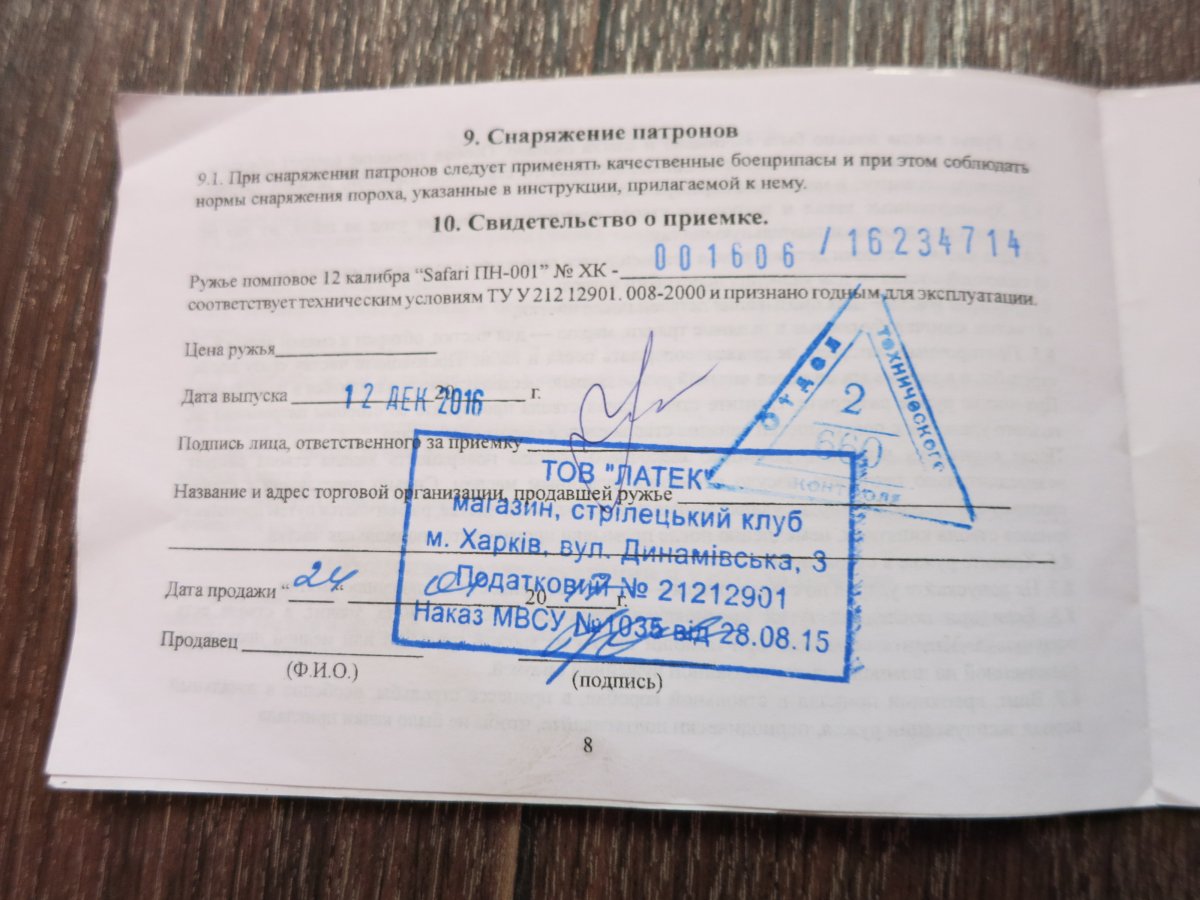 9. Снаряжение патронов
9.1. При снаряжении патронов следует применять качественные боеприпасы и при этом соблюдать
нормы снаряжения пороха, указанные в инструкции, прилагаемой к нему.
10. Свидетельство о приемке.
Ружье помповое 12 калибра “Safari ПН-001” № ХК - 001606 / 16234714
соответствует техническим условиям ТУ У 212 12901. 008-2000 и признано годным для эксплуатации.
Цена ружья
Дата выпуска 12 ДЕК 2016 20 г.
Подпись лица, ответственного за приемку
Отдел технического контроля
2
660
Название и адрес торговой организации, продавшей ружье
ТОВ "ЛАТЕК"
магазин, стрілецький клуб
м. Харків, вул. Динамівська, 3
Податковий № 21212901
Наказ МВСУ №1035 від 28.08.15
Дата продажи “24” 20 г.
Продавец
(Ф.И.О.) (подпись)
8